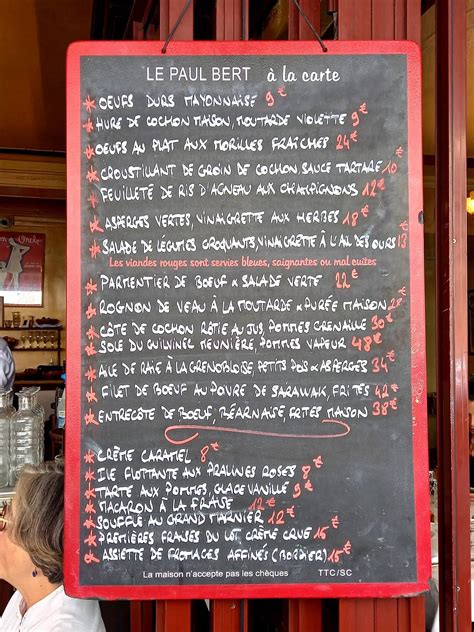 LE PAUL BERT à la carte
OEUFS DURS MAYONNAISE 9€
HURE DE COCHON MAISON, MOUTARDE VIOLETTE 9€
OEUFS AU PLAT AUX MORILLES FRAÎCHES 24€
CROUSTILLANT DE GROIN DE COCHON SAUCE TARTARE 10€
FEUILLETÉ DE RIS D'AGNEAU AUX CHAMPIGNONS 12€
ASPERGES VERTES, VINAIGRETTE AUX HERBES 18€
SALADE DE LÉGUMES CROQUANTS, VINAIGRETTE À L'AIL DES OURS 13€
Les viandes rouges sont servies bleues, saignantes ou mal cuites
PARMENTIER DE BOEUF & SALADE VERTE 22€
ROGNON DE VEAU À LA MOUTARDE & PURÉE MAISON 28€
CÔTE DE COCHON RÔTIE AU JUS, POMMES GRENAILLE 30€
SOLE DU GUILVINEC MEUNIÈRE, POMMES VAPEUR 48€
AILE DE RAIE À LA GRENOBLOISE, PETITS POIS & ASPERGES 34€
FILET DE BOEUF AU POIVRE DE SARAWAK, FRITES 42€
ENTRECÔTE DE BOEUF, BÉARNAISE, FRITES MAISON 38€
CRÈME CARAMEL 8€
ILE FLOTTANTE AUX PRALINES ROSES 8€
TARTE AUX POMMES, GLACE VANILLE 9€
MACARON À LA FRAISE 12€
SOUFFLÉ AU GRAND MARNIER 12€
PREMIÈRES FRAISES DU LOT CRÈME CRUE 15€
ASSIETTE DE FROMAGES AFFINÉS (BORDIER) 15€
La maison n'accepte pas les chèques TTC/SC